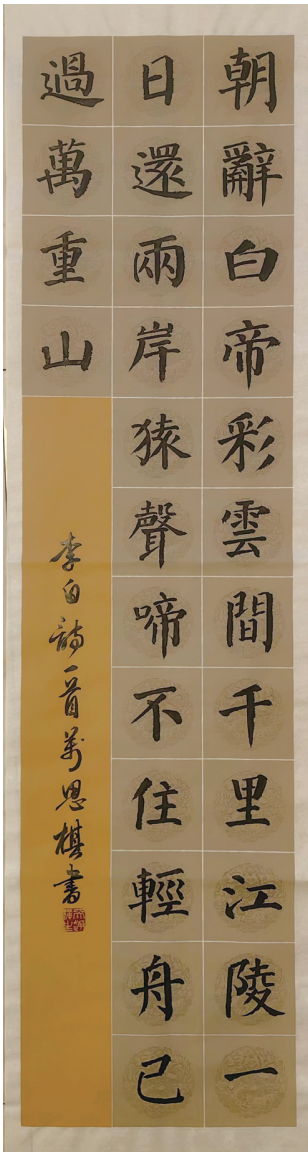 朝辭白帝彩雲間千里江陵一
日還兩岸猿聲啼不住輕舟已
過萬重山
李白詩一首萬思棋書